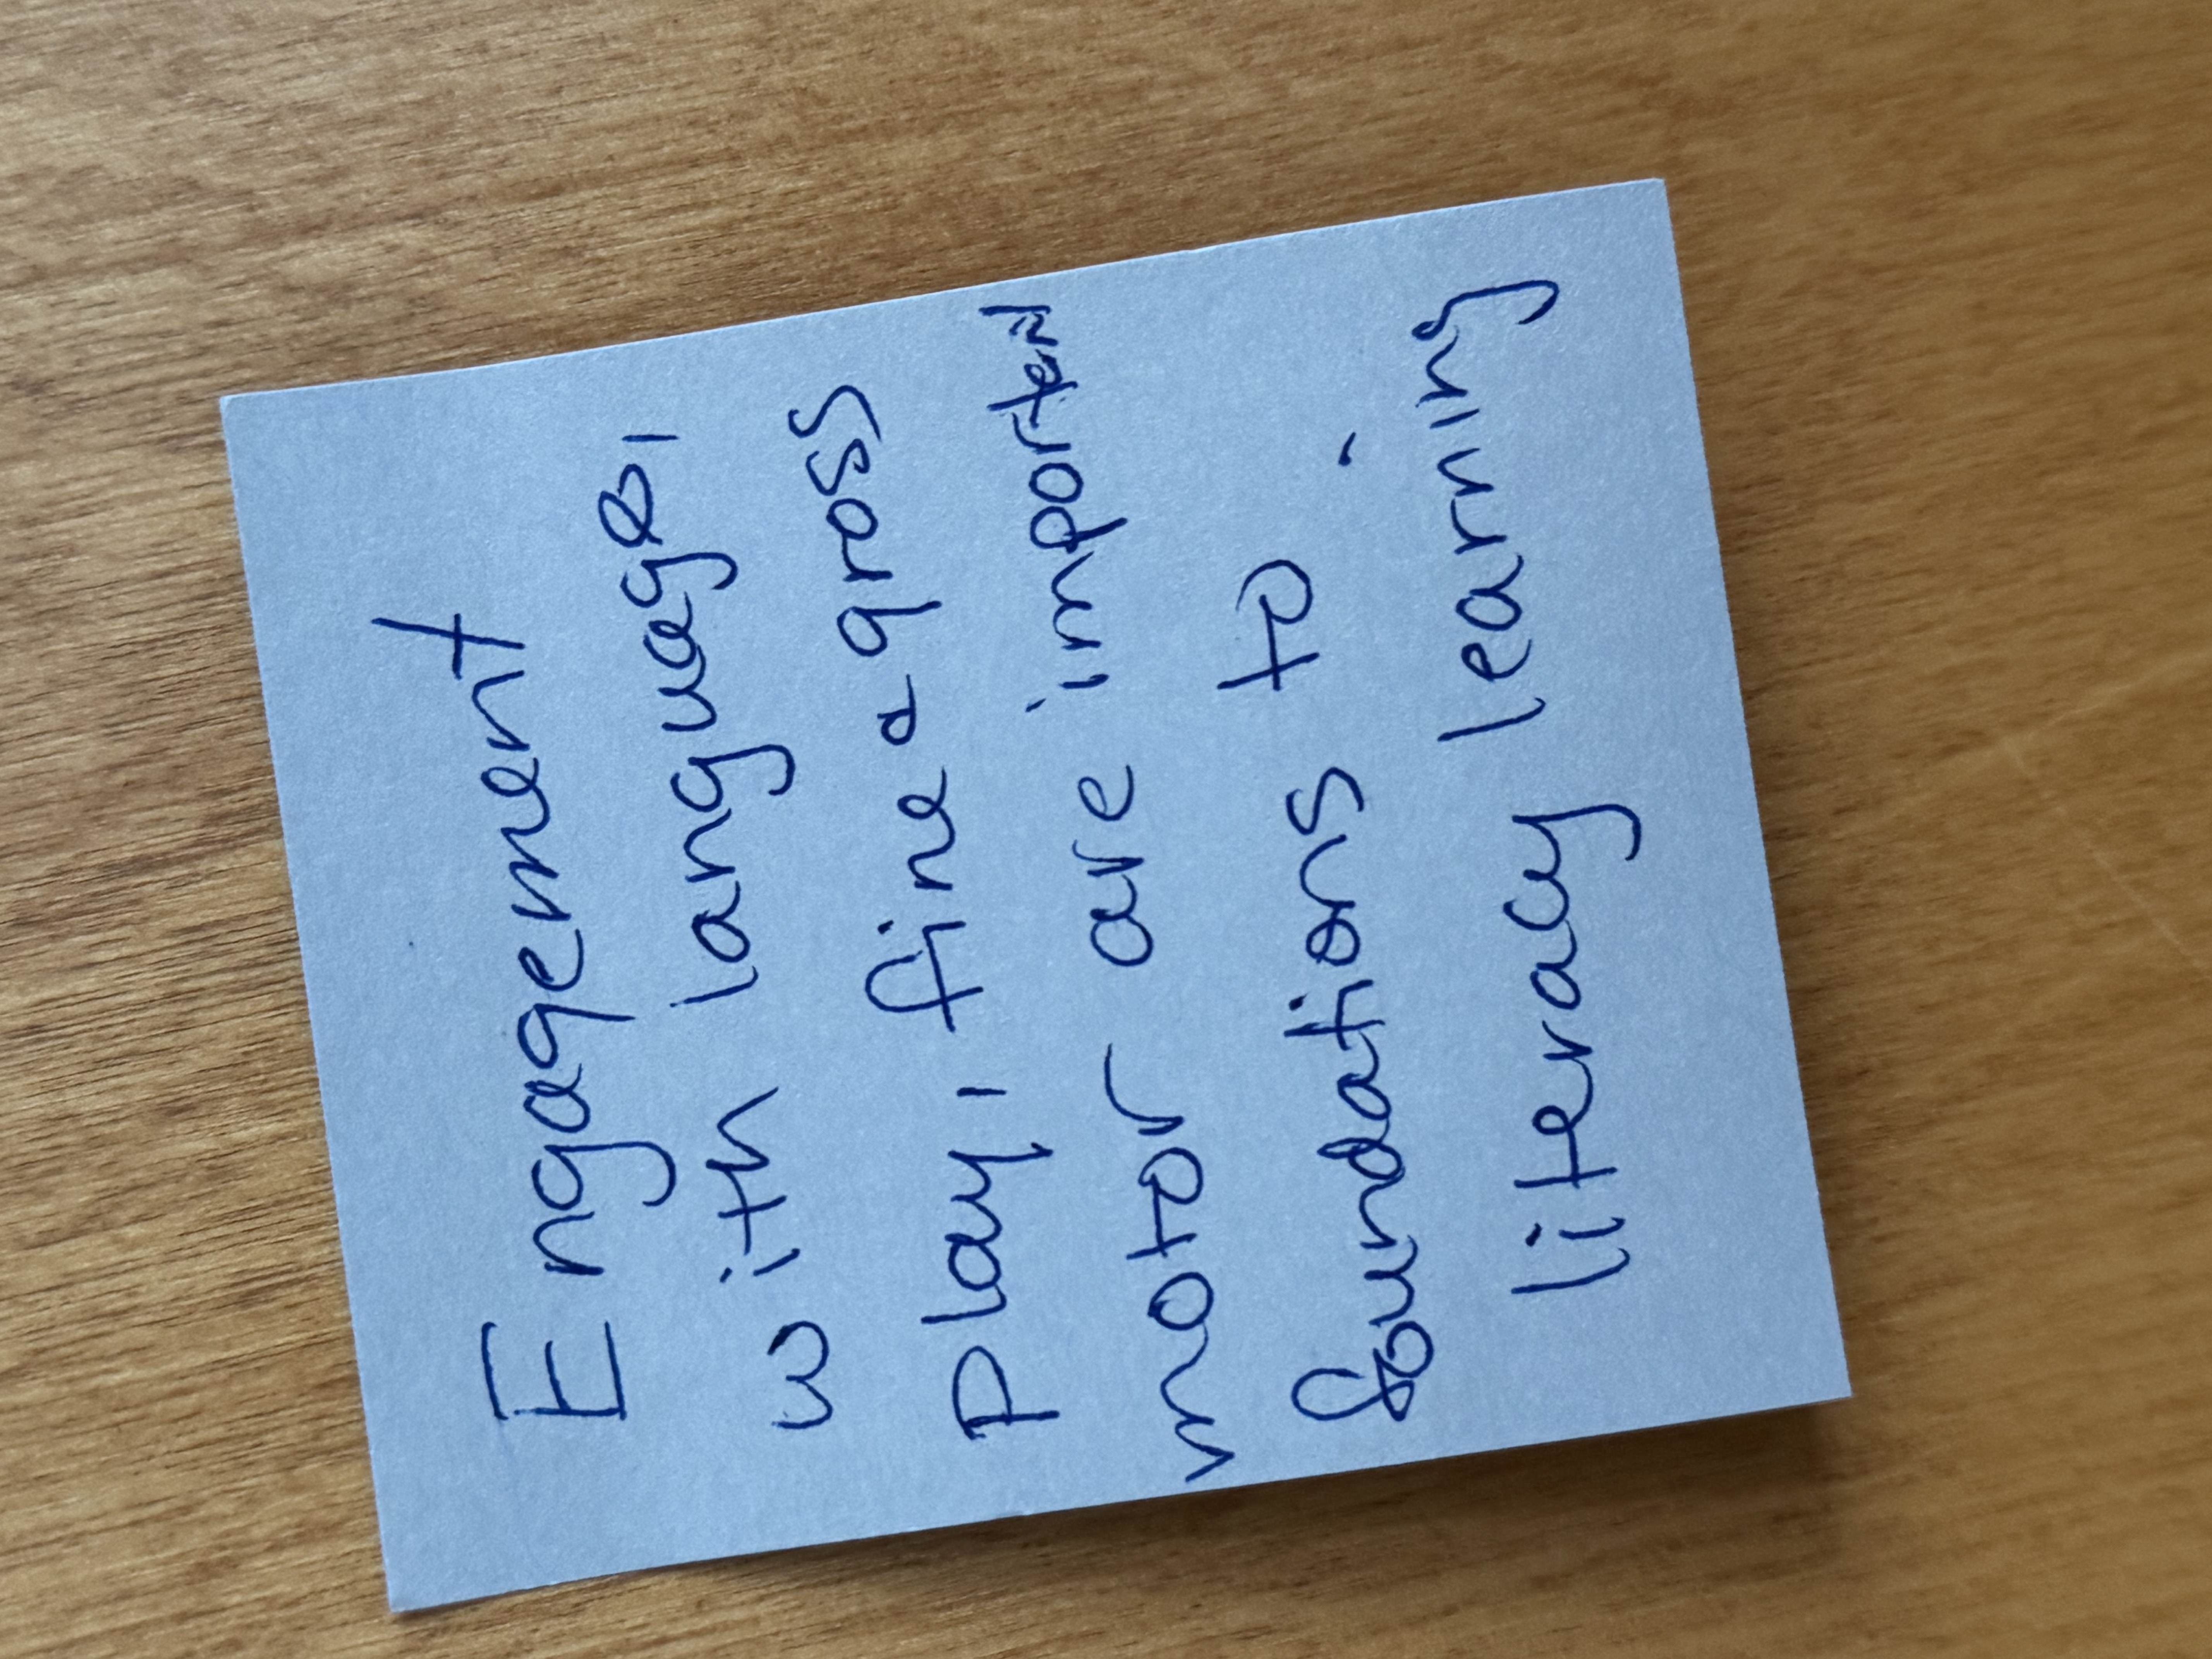 Engagement
with language,
play, fine & gross
motor are important
foundations to
literacy learning